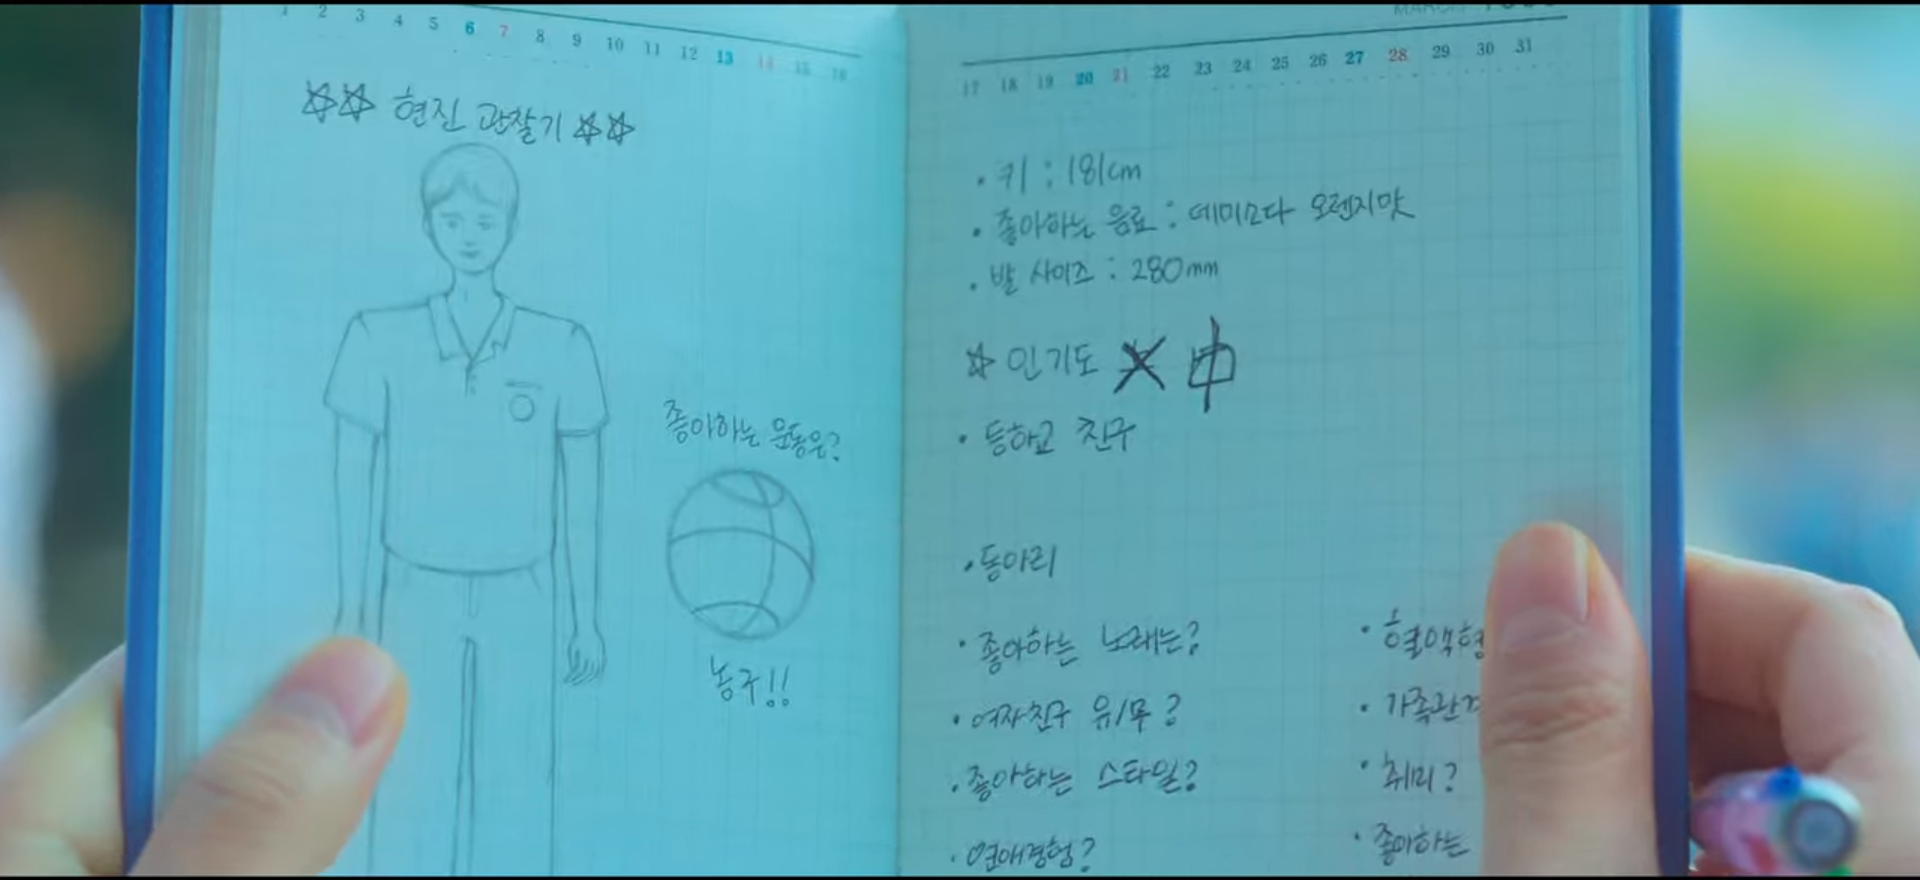 1 2 3 4 5 6 7 8 9 10 11 12 13 14 15 16
☆☆ 현진 관찰기 ☆☆
좋아하는 운동은?
농구!!
MARCH
17 18 19 20 21 22 23 24 25 26 27 28 29 30 31
• 키 : 181cm
• 좋아하는 음료 : 데미소다 오렌지맛
• 발 사이즈 : 280mm
☆ 인기도 X 中
• 등하교 친구
• 동아리
• 좋아하는 노래는?
• 여자친구 유/무?
• 좋아하는 스타일?
• 연애경험?
• 혈액형
• 가족관
• 취미?
• 좋아하는